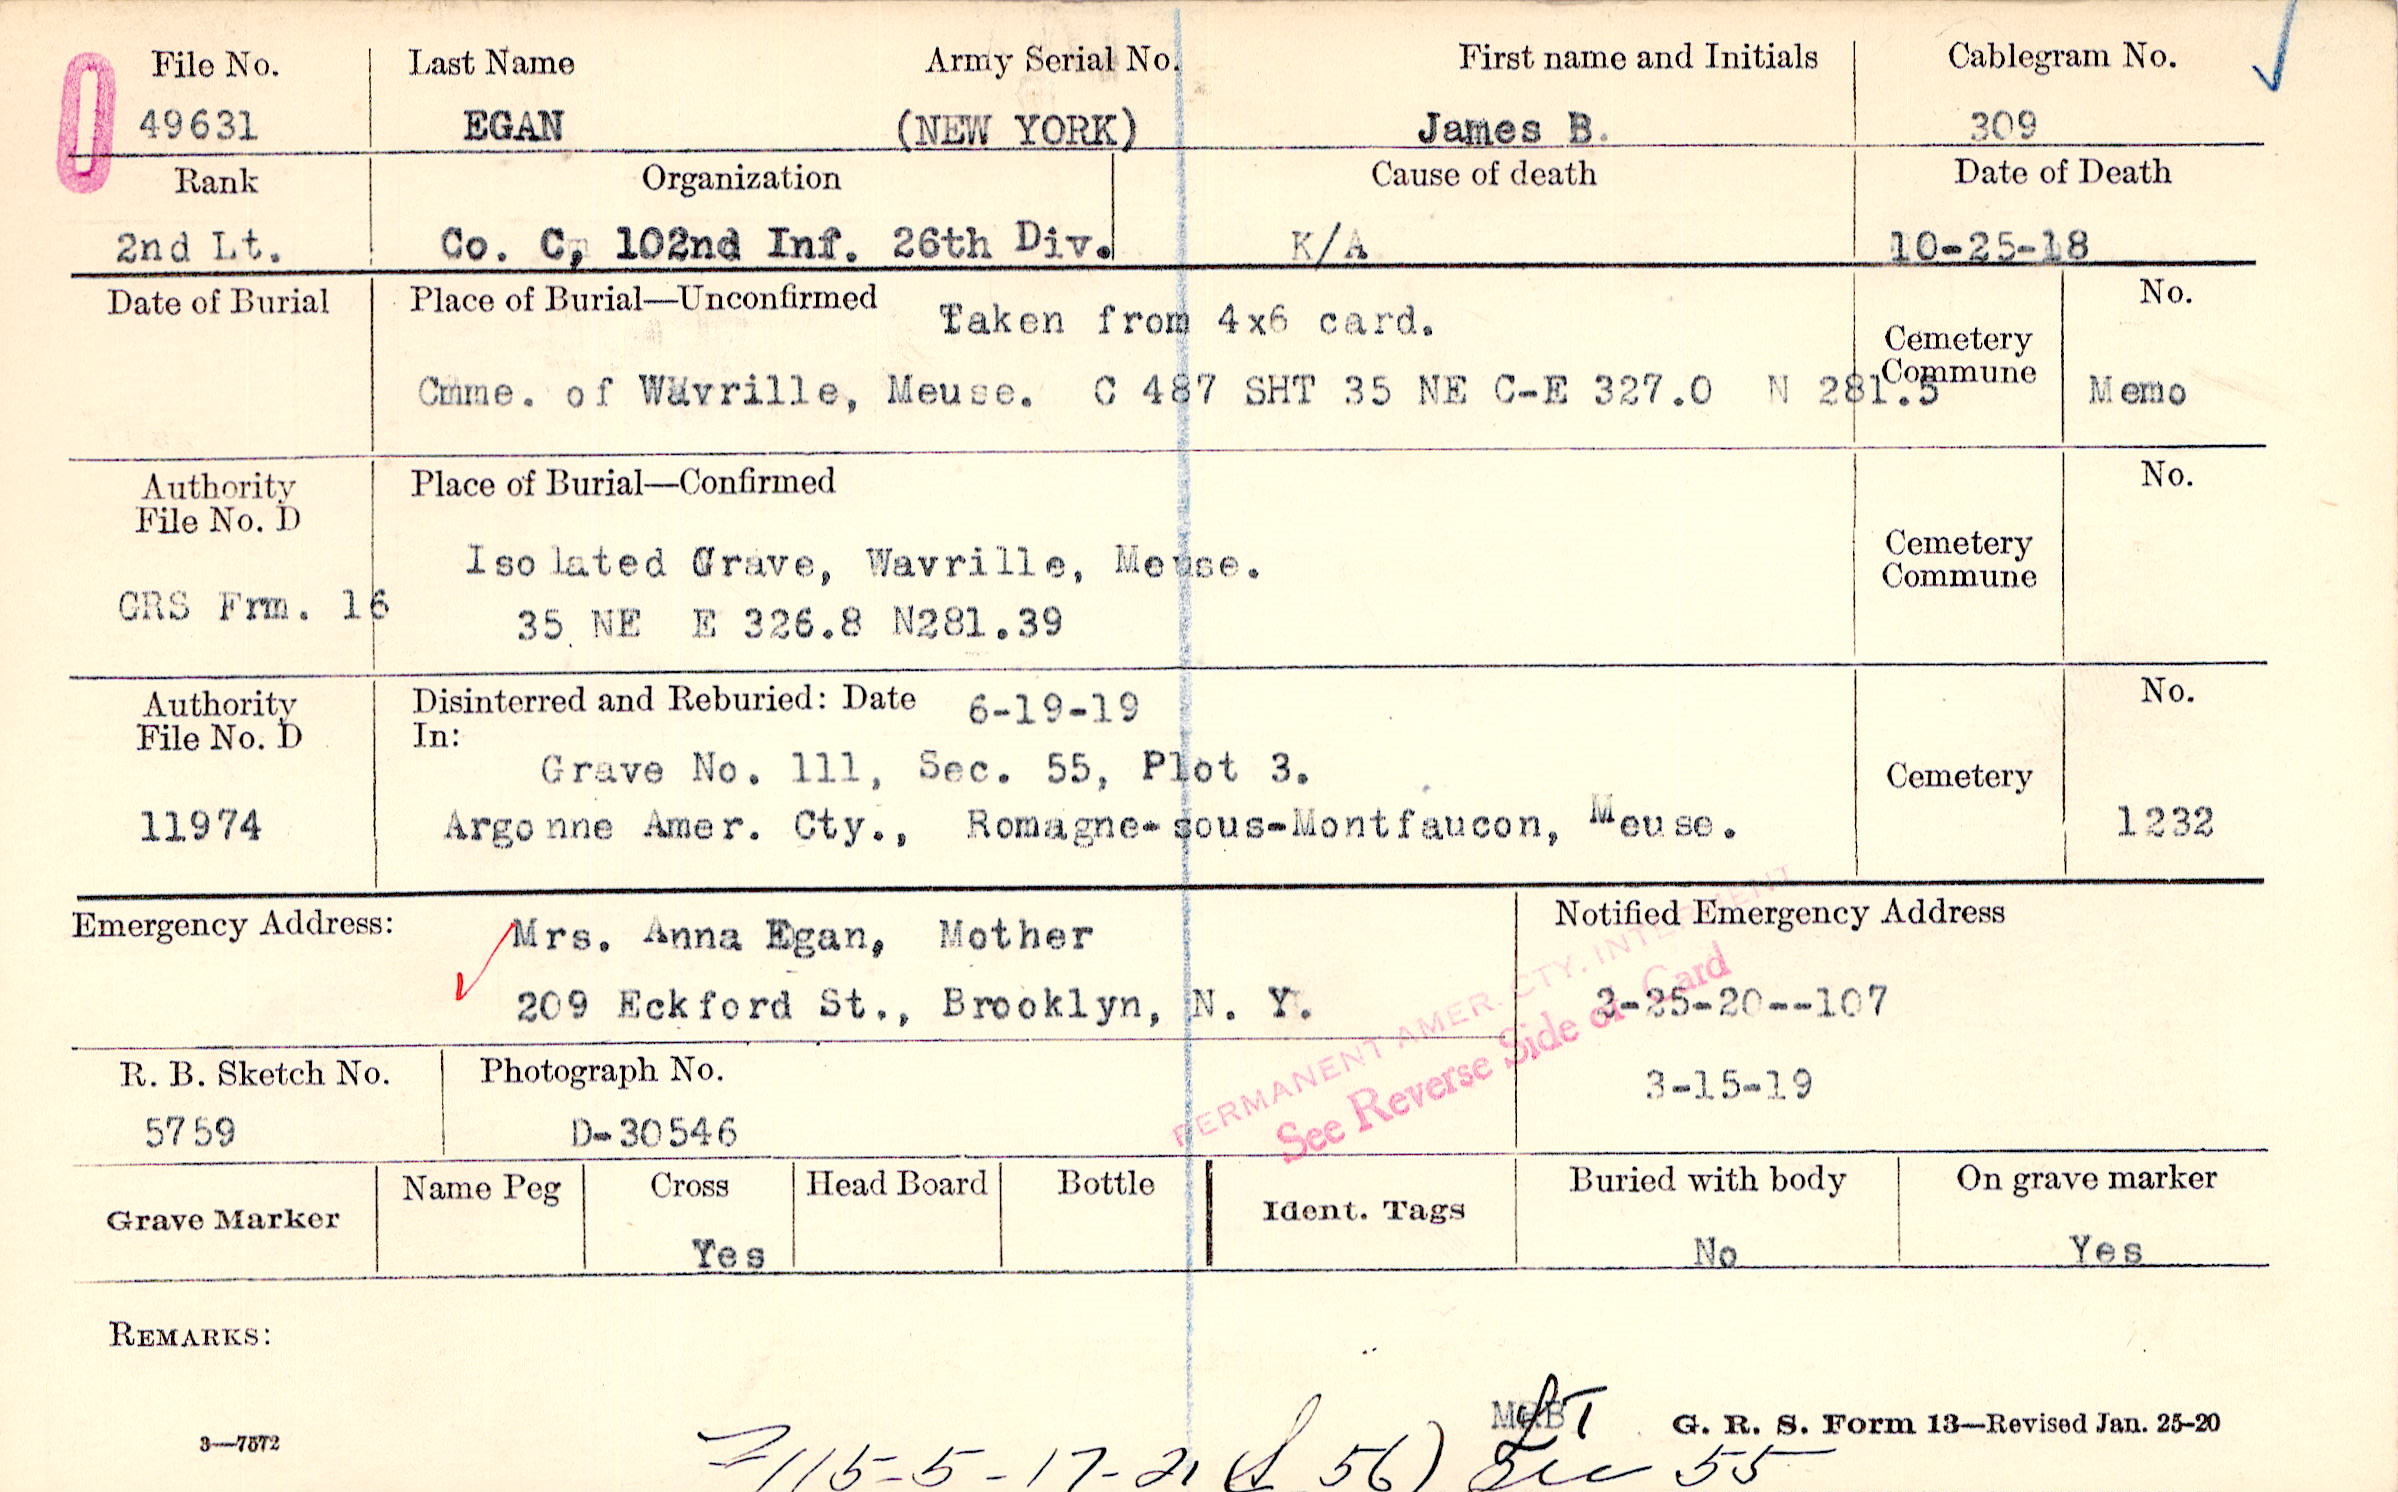 File No. Last Name Army Serial No. First name and Initials Cablegram No.
49631 EGAN (NEW YORK) James B. 309
Rank Organization Cause of death Date of Death
2nd Lt. Co. C, 102nd Inf. 26th Div. K/A 10-25-18
Date of Burial Place of Burial—Unconfirmed Taken from 4x6 card. No.
Cemetery
Commune
Cmme. of Wavrille, Meuse. C 487 SHT 35 NE C-E 327.0 N 281.5 Memo
Authority
File No. D
Place of Burial—Confirmed No.
Cemetery
Commune
Isolated Grave, Wavrille, Meuse.
GRS Frm. 16
35 NE E 326.8 N281.39
Authority
File No. D
Disinterred and Reburied: Date 6-19-19 No.
In:
Grave No. 111, Sec. 55, Plot 3. Cemetery
11974 Argonne Amer. Cty., Romagne-sous-Montfaucon, Meuse. 1232
Emergency Address: Mrs. Anna Egan, Mother Notified Emergency Address
209 Eckford St., Brooklyn, N. Y. 2-25-20--107
3-15-19
PERMANENT AMER. CTY. INTERMENT
See Reverse Side of Card
R. B. Sketch No. Photograph No.
5759 D-30546
Grave Marker Name Peg Cross Head Board Bottle Ident. Tags Buried with body On grave marker
Yes No Yes
REMARKS:
3—7572 G. R. S. Form 13—Revised Jan. 25-20
115-5-17-21 56) Sec 55